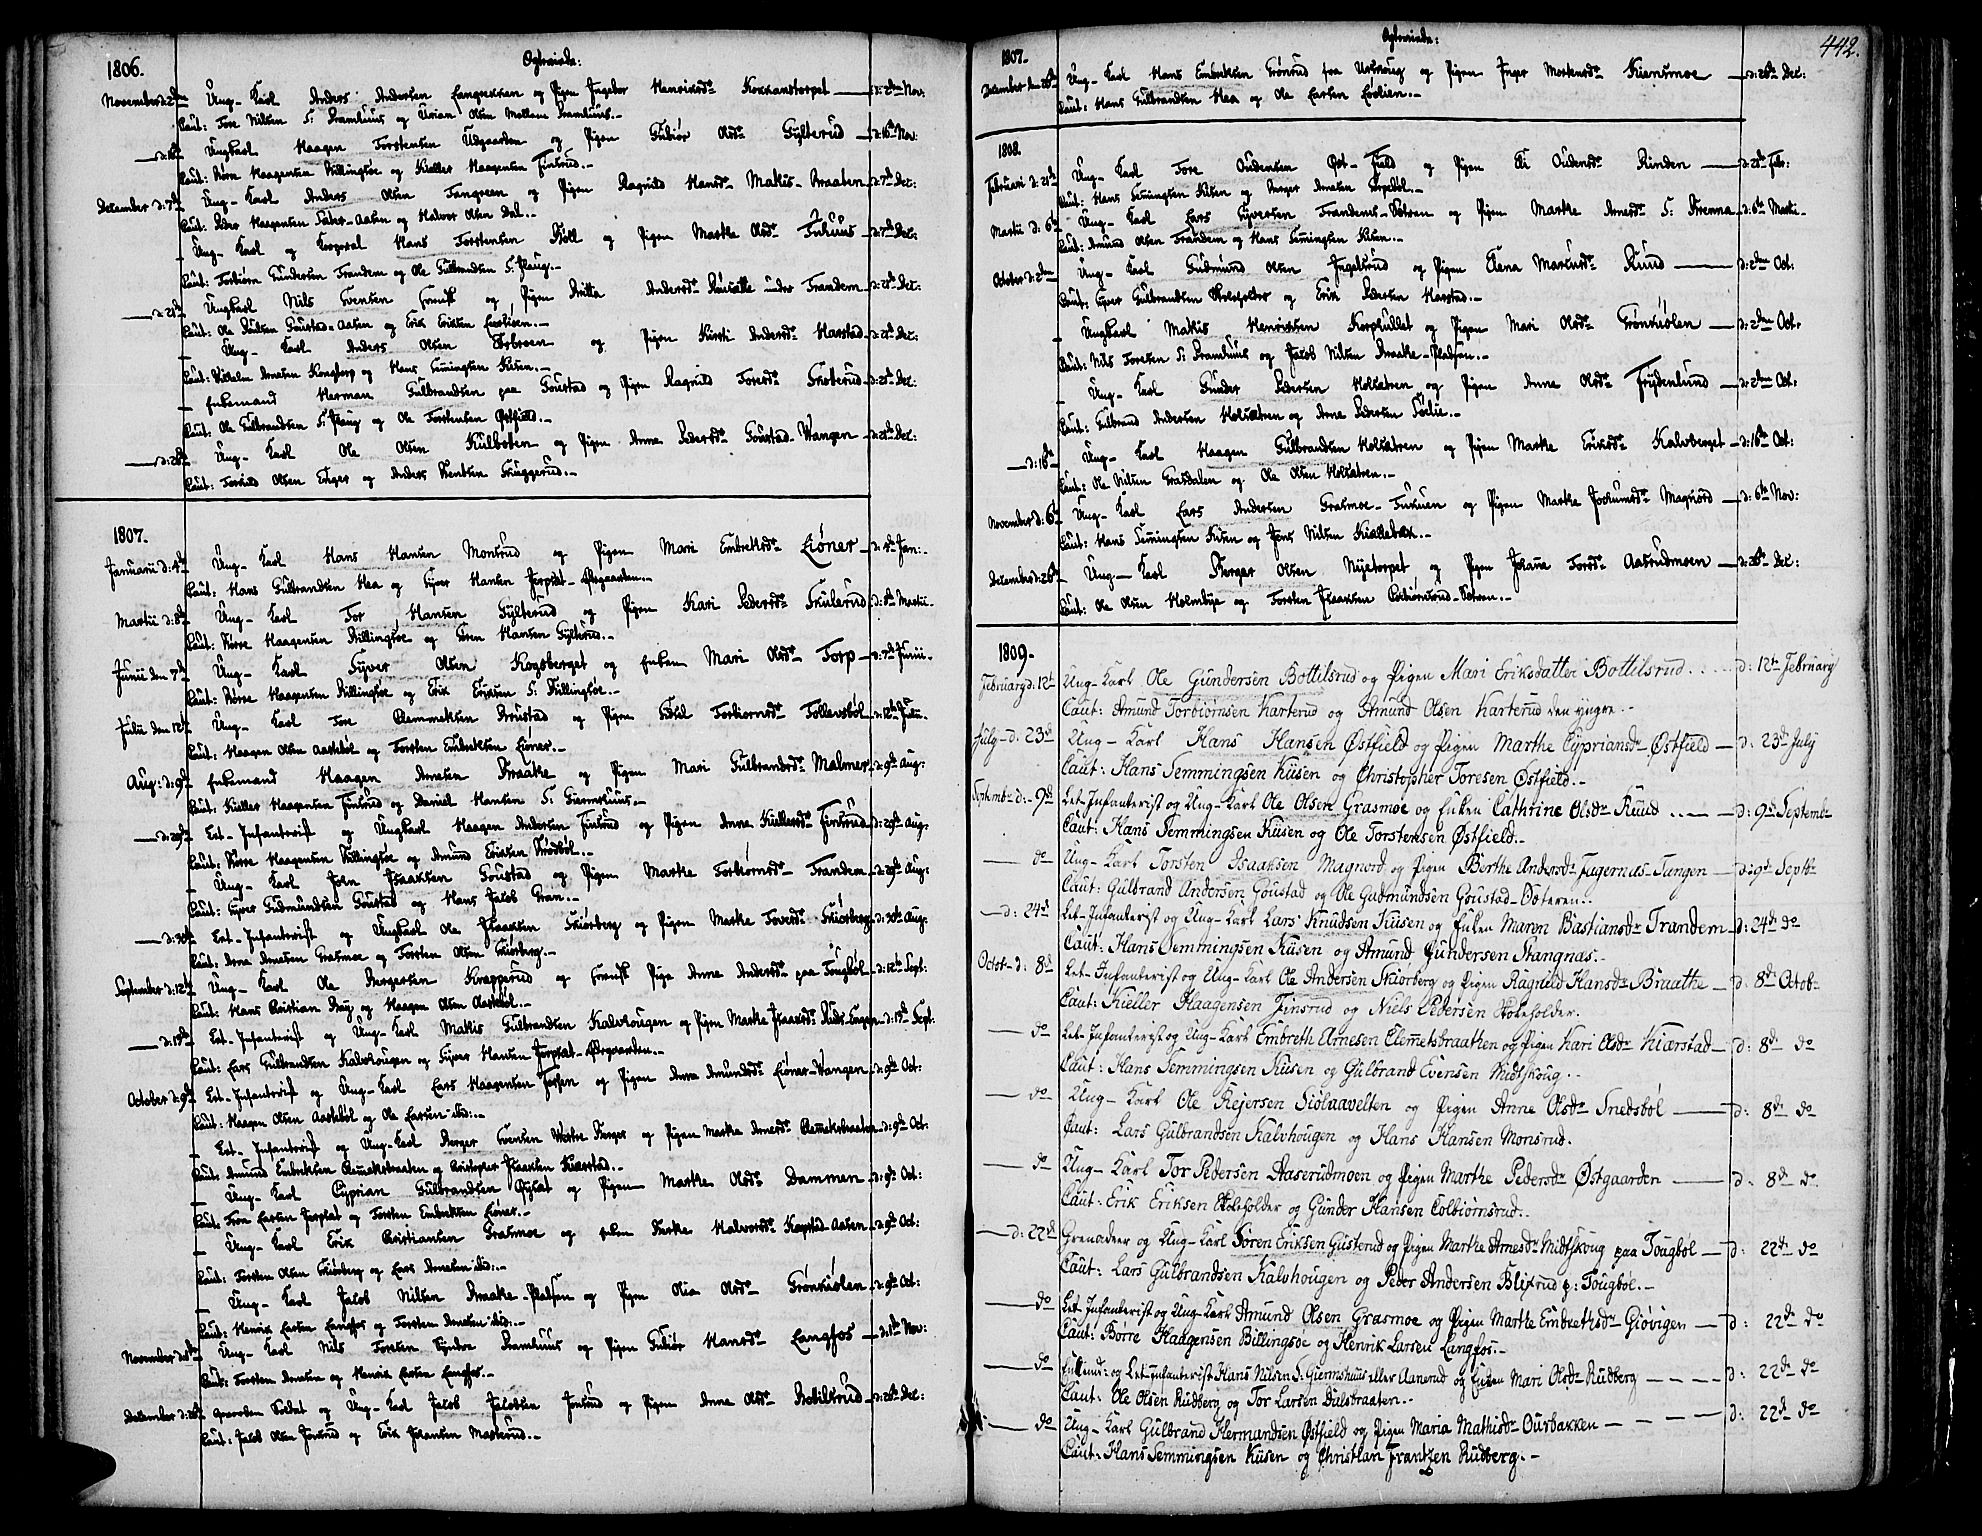 Ogteviede:
1806.
November d: 2den Ung-Karl Anders Andersen Langnekken og Pigen Ingebor Henrichsdr Kokkanstorpet — d: 2den Nov:
Caut: Tore Nilsen S: Bramhuus og Urian Olsen Mellom Bramhuus.-
— d: 16de Ungkarl Haagen Torstensen Udgaarden og Pigen Gubiør Olsdr Gylterud — d: 16de Nov:
Caut: Børre Haagensen Billingsøe og Kieller Haagensen Finsrud.-
December d: 7de Ung-Karl Anders Olsen Tangreen og Pigen Ragnild Hansdr Makis-Braaten d: 7de Dec:
Caut: Peder Haagensen Sæter-Aasen og Halvor Olsen Dal.-
— Ung-Karl og Korporal Hans Torstensen Skøll og Pigen Marthe Olsdr d: 7de Dec:
Caut: Torbiørn Gundersen Trandem og Ole Gulbrandsen S: Haug.-
— d: 21de Ungkarl Nils Svensen og Pigen Britta Andersdr under Trandem d: 21de Dec:
Caut: Ole Goustad-Aasen og Erik Eriksen
— Ung-Karl Anders Olsen og Pigen Kirsti Andersdr Harstad d: 21de Dec:
Caut: Wilhelm Arnesen Kongtorp og Hans Semingsen Kiisen.-
— Enkemand Herman Gulbrandsen paa Goustad og Pigen Ragnild Toresdr d: 21de Dec:
Caut: Ole Gulbrandsen S: Haug og Ole Torstensen Østfield.-
— d: 28de Ung-Karl Ole Olsen Kulboten og Pigen Anne Pedersdr Goustad-Wangen — d: 28de Dec:
Caut: Torkild Olsen Enger og Anders Bentsen Skuggerud.-
1807.
Januarii d: 4de Ung-Karl Hans Hansen Monsrud og Pigen Mari Embretsdr Liøner — d: 4de Jan:
Caut: Hans Gulbrandsen Hea og Syver Hansen Jerpset-Øvgaarden.-
Martii d: 8de Ung-Karl Tor Hansen Gylterud og Pigen Kari Pedersdr Skulerud d: 8de Martii
Caut: Børre Haagensen Billingsøe og Hansen Gylterud.-
Junii den 7de Ung-Karl Syver Olsen Kogsberget og Enken Mari Olsdr Torp — d: 7de Junii
Caut: Børre Haagensen Billingsøe og Erik Eriksen S: Killingsøe.-
Julii den 12te Ung-Karl Tore Clemmetsen Brustad og Pigen Sidsel Torbiørnsdr Tollevsbøl d: 12te Julii
Caut: Haagen Olsen Aasebøl og Torsten Embretsen Liøner.-
Aug: d: 9de Enkemand Haagen Arnesen Braake og Pigen Mari Gulbrandsdr Malmer d: 9de Aug:
Caut: Kieller Haagensen Finsrud og Daniel Hansen S: Giernshuus.-
— d: 29de Let-Infanterist og Ungkarl Haagen Andersen Finsrud og Pigen Anne Kiellersdr Finsrud d: 29de Aug:
Caut: Børre Haagensen Billingsøe og Amund Eriksen
— Ung-Karl John Isaaksen Goustad og Pigen Marthe Torbiørnsdr Trandem d: 29de Aug:
Caut: Syver Gudmundsen Goustad og Hans Jacob Gran.-
— d: 30te Let-Infanterist og Ungkarl Ole Isaaksen Skiørberg og Pigen Marthe Toresdr Skiørberg d: 30te Aug:
Caut: Arne Arnesen Grasmoe og Torsten Olsen Skiørberg.-
September d: 12te Ung-Karl Ole Borgersen Knapperud og Pige Anne Andersdr paa Tougbøl d: 12te Sept:
Caut: Hans Christian og Haagen Olsen Aasebøl.-
— d: 13de Let-Infanterist og Ung-Karl Makis Gulbrandsen Kalvhougen og Pigen Marthe Isaaksdr d: 13de Sept:
Caut: Lars Gulbrandsen Kalvhougen og Syver Hansen Jerpset-Øvgaarden.-
October d: 9de Let-Infanterist og Ung-Karl Lars Haagensen og Pigen Anne Amundsdr Liøner-Wangen d: 9de Oct:
Caut: Haagen Olsen Aasebøl og Ole Larsen ibid:-
— Let-Infanterist og Ung-Karl Børger Svensen Westre Berger og Pigen Marthe Arnesdr Clemetsbraaten d: 9de Oct:
Caut: Amund Embretsen Clemetsbraaten og Christopher Isaaksen Kiærstad.-
— Ung-Karl Cyprian Gulbrandsen og Pigen Marthe Olsdr Dammen d: 9de Oct:
Caut: Tron Larsen Jerpset og Torsten Embretsen Liøner.-
— Ung-Karl Erik Christiansen Grasmoe og Enken Berthe Halvorsdr Harstad-Aasen d: 9de Oct:
Caut: Torsten Olsen Skiørberg og Lars Arnesen ibid:-
— Ung-Karl Jacob Nilsen Braake-Pladsen og Pigen Olia Olsdr Grønhiolen d: 9de Oct:
Caut: Henrik Larsen Langfos og Torsten Arnesen ibid:-
November d: 1ste Ung-Karl Nils Toresen Syndre Bramhuus og Pigen Gubiør Hansdr Langfos — d: 1ste Nov:
Caut: Torsten Arnesen og Henrik Larsen Langfos.-
December d: 26de Soldat og Ung-Karl Jacob Jacobsen Jonsrud og Pigen Anne Olsdr Bottilsrud — d: 26de Dec:
Caut: Jacob Olsen Jonsrud og Erik Johansen Masterud.-
Ogteviede:
442.
1807.
December den 26de Ung-Karl Hans Embretsen Grønrud fra Urskoug og Pigen Inger Mortensdr Kiensmoe — d: 26de Dec:
Caut: Hans Gulbrandsen Hea og Ole Larsen Evelien.-
1808.
Februari d: 21de Ung-Karl Tore Oudensen Øst-Field og Pigen Eli Oudensdr Rinden — d: 21de Febr:
Caut: Hans Semingsen Kiisen og Børger Arnesen
Martii d: 6te Ung-Karl Lars Syversen Trandems-Sætren og Pigen Marthe Arnesdr S: Brenna d: 6te Martii
Caut: Amund Olsen Trandem og Hans Semingsen Kiisen.-
October d: 2den Ung-Karl Gudmund Olsen Ingelsrud og Pigen Elena Mariusdr Ruud — d: 2den Oct:
Caut: Syver Gulbrandsen Skoleholder og Erik Pedersen Harstad.-
— Ungkarl Makis Henrichsen Korphullet og Pigen Mari Olsdr Grønhiolen — d: 2den Oct:
Caut: Nils Toresen S: Bramhuus og Jacob Nilsen Braake-Pladsen.-
— Ung-Karl Gunder Pedersen Holsætren og Pigen Anne Olsdr Frydenlund — d: 2den Oct:
Caut: Gulbrand Andersen Holsætren og Arne Pedersen Sørlie.-
— d: 16de Ung-Karl Haagen Gulbrandsen Holsætren og Pigen Marthe Eriksdr Kalvberget — d: 16de Oct:
Caut: Ole Nilsen Gratdalen og Ole Olsen Holsætren.-
November d: 6te Ung-Karl Lars Andersen Grasmoe-Furuen og Pigen Marthe Jochumsdr Magnord — d: 6te Nov:
Caut: Hans Semingsen Kiisen og Jens Nilsen Kiellebæk.-
December d: 26de Ung-Karl Børger Olsen Nyetorpet og Pigen Johanne Toresdr Aaserudmoen — d: 26de Dec:
Caut: Ole Olsen Holmbye og Torsten Isaaksen Colbiørnsrud-Sætren.-
1809.
February d: 12te Ung-Karl Ole Gundersen Bottilsrud og Pigen Mari Eriksdatter Bottilsrud . . . d: 12te February
Caut: Amund Torbiørnsen Harterud og Amund Olsen Harterud den yngre.-
July - d: 23de Ung-Karl Hans Hansen Østfield og Pigen Marthe Cypriansdr Østfield — d: 23de July
Caut: Hans Semmingsen Kiisen og Christopher Toresen Østfield.-
Septembr d: 9de Let-Infanterist og Ung-Karl Ole Olsen Grasmoe og Enken Cathrine Olsdr Ruud ..— d: 9de Septembr
Caut: Hans Semmingsen Kiisen og Ole Torstensen Østfield.-
— do Ung-Karl Torsten Isaaksen Magnord og Pigen Berthe Andersdr Fagernæs-Tangen — d: 9de Septbr
Caut: Gulbrand Andersen Goustad og Ole Gudmundsen Goustad-Sæteren..
— d: 24de Let-Infanterist og Ung-Karl Lars Knudsen Kiisen og Enken Maren Bastiansdr Trandem — d: 24de do
Caut: Hans Semmingsen Kiisen og Amund Gundersen Skangnæs.-
Octobr d: 8de Let-Infanterist og Ung-Karl Ole Andersen Skiørberg og Pigen Ragnild Hansdr Braathe — d: 8de Octobr
Caut: Kieller Haagensen Finsrud og Niels Pedersen Skoleholder.
— do Let-Infanterist og Ung-Karl Embreth Arnesen Clemetsbraathen og Pigen Kari Olsdr Kiærstad — d: 8de do
Caut: Hans Semmingsen Kiisen og Gulbrand Evensen Midtskoug..
— do Ung-Karl Ole Rejersen Siølaavelten og Pigen Anne Olsdr Snedsbøl — d: 8de do
Caut: Lars Gulbrandsen Kalvhougen og Hans Hansen Monsrud.
— do Ung-Karl Tor Pedersen Aaserudmoen og Pigen Marthe Pedersdr Østgaarden — d: 8de do
Caut: Erik Eriksen Skoleholder og Gunder Hansen Colbiørnsrud..
— d: 22de Grenadeer og Ung-Karl Søren Eriksen Gusterud og Pigen Marthe Arnesdr Midtskoug paa Tougbøl — d: 22de do
Caut: Lars Gulbrandsen Kalvhougen og Peder Andersen Blixrud p: Tougbøl.-
— do Let-Infanterist og Ung-Karl Amund Olsen Grasmoe og Pigen Marthe Embrethsdr Giøvigen — d: 22de do
Caut: Børre Haagensen Billingsøe og Henrik Larsen Langfos.-
— do Enkemd: og Let-Infanterist Hans Nilsen S: Giernshuus eller Aanerud og Enken Mari Olsdr Rudberg — d: 22de do
Caut: Ole Olsen Rudberg og Tor Larsen Dulsbraaten..
— do Ung-Karl Gulbrand Hermandsen Østfield og Pigen Maria Mathisdr Ousbakken — d: 22de do
Caut: Hans Semmingsen Kiisen og Christian Frantzen Rudberg.-